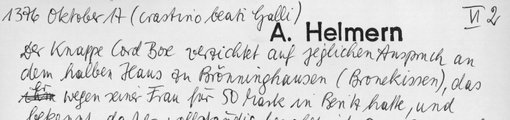 1376 Oktober 17 (crastino beati Galli)
A. Helmern
VI 2
Der Knappe Cord Boe verzichtet auf jeglichen Anspruch an
dem halben Haus zu Brönninghausen (Bronekissen), das
er wegen seiner Frau für 50 Mark in Besitz hatte, und
bekennt, daß er vollständig